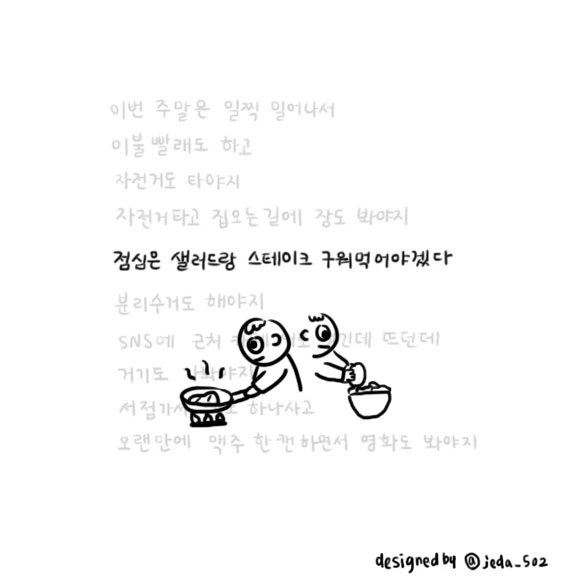 이번 주말은 일찍 일어나서
이불 빨래도 하고
자전거도 타야지
자전거타고 집오는길에 장도 봐야지
점심은 샐러드랑 스테이크 구워먹어야겠다
분리수거도 해야지
SNS에 근처 뜨던데
거기도 가봐야지
서점가서 하나사고
오랜만에 맥주 한캔하면서 영화도 봐야지
designed by @jeda_502